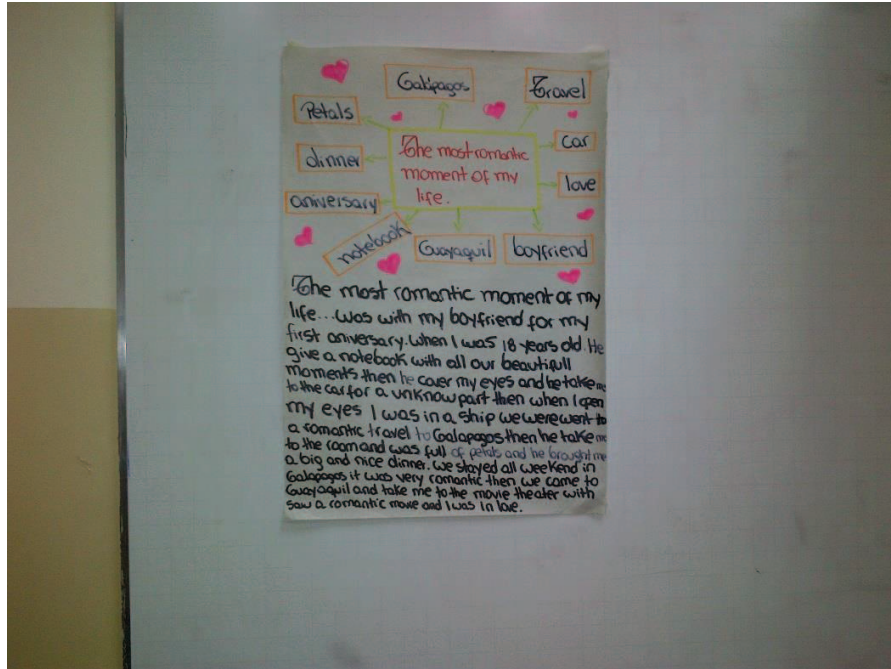 Galápagos
Travel
Petals
car
The most romantic
moment of my
life.
dinner
love
aniversary
notebook
Guayaquil
boyfriend
The most romantic moment of my
life... was with my boyfriend for my
first aniversary. When I was 18 years old. He
give a notebook with all our beautifull
moments then he cover my eyes and he take me
to the car for a unknow part then when I open
my eyes I was in a ship we were went to
a romantic travel to Galapagos then he take me
to the room and was full of petals and he brought me
a big and nice dinner. We stayed all weekend in
Galapagos it was very romantic then we came to
Guayaquil and take me to the movie theater with
saw a romantic movie and I was in love.